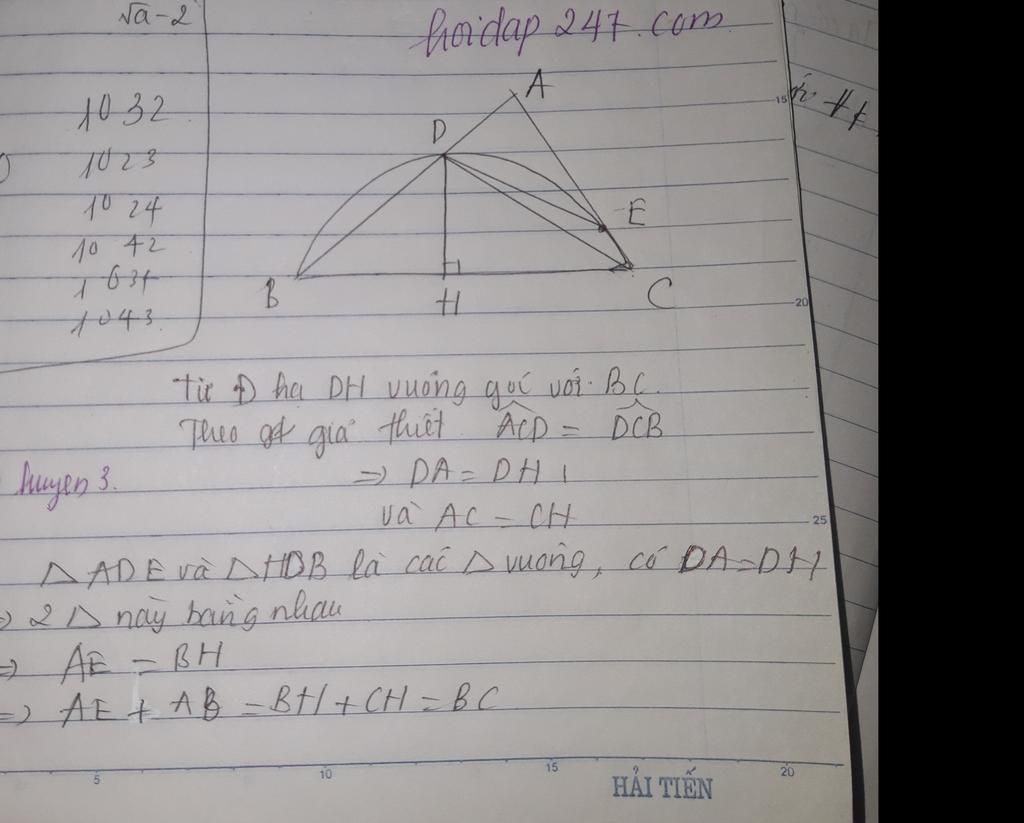 √a-2
hoidap 247. com
1032
1023
1024
1042
1043
A
D
E
B
H
C
15
20
Từ Đ hạ DH vuông góc với BC.
Theo gt giả thiết ACD = DCB
huyen 3.
⇒ DA = DH
và AC = CH
25
△ ADE và △HDB là các △ vuông, có DA=DH
⇒ 2 △ này bằng nhau
⇒ AE = BH
⇒ AE + AB = BH + CH = BC
5 10 15 20
HẢI TIẾN